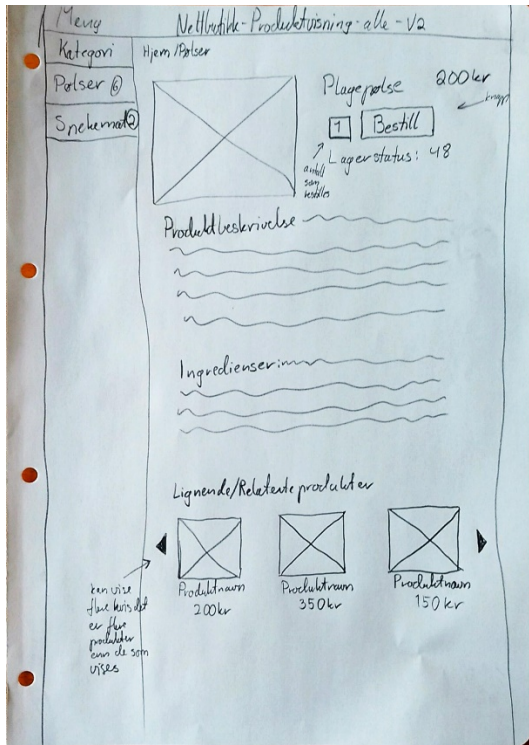 Meny
Nettbutikk-Produktvisning-alle-V2
Kategori
Hjem/Pølser
Pølser 6
Spekemat 2
Plagepølse
200kr
1
Bestill
knapp
Lagerstatus: 48
antall
som
bestilles
Produktbeskrivelse
Ingredienser:
Lignende/Relaterte produkter
Produktnavn
200kr
Produktnavn
350kr
Produktnavn
150kr
kan vise
flere hvis det
er flere
produkter
enn de som
vises